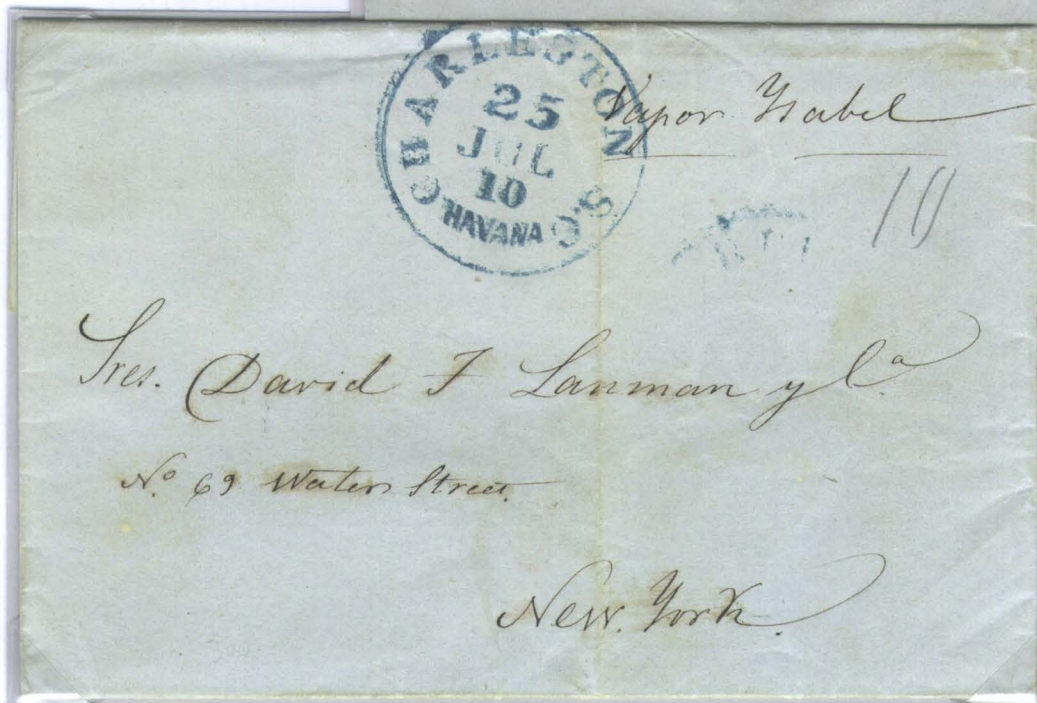 CHARLESTON S.C.
25
JUL
10
HAVANA
Vapor Ysabel
10
Sres. David F Lanman y Ca
No. 69 Water Street.
New. York.